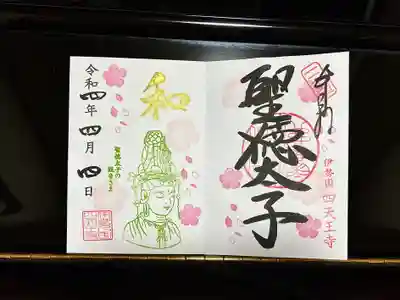 奉拝
聖徳太子
伊勢国 四天王寺
和
聖徳太子の
観音さま
令和四年四月四日